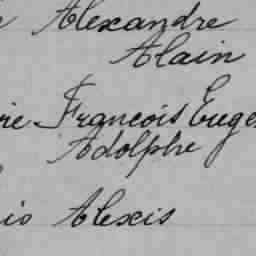 Alexandre
Alain
François Euge
Adolphe
Alexis